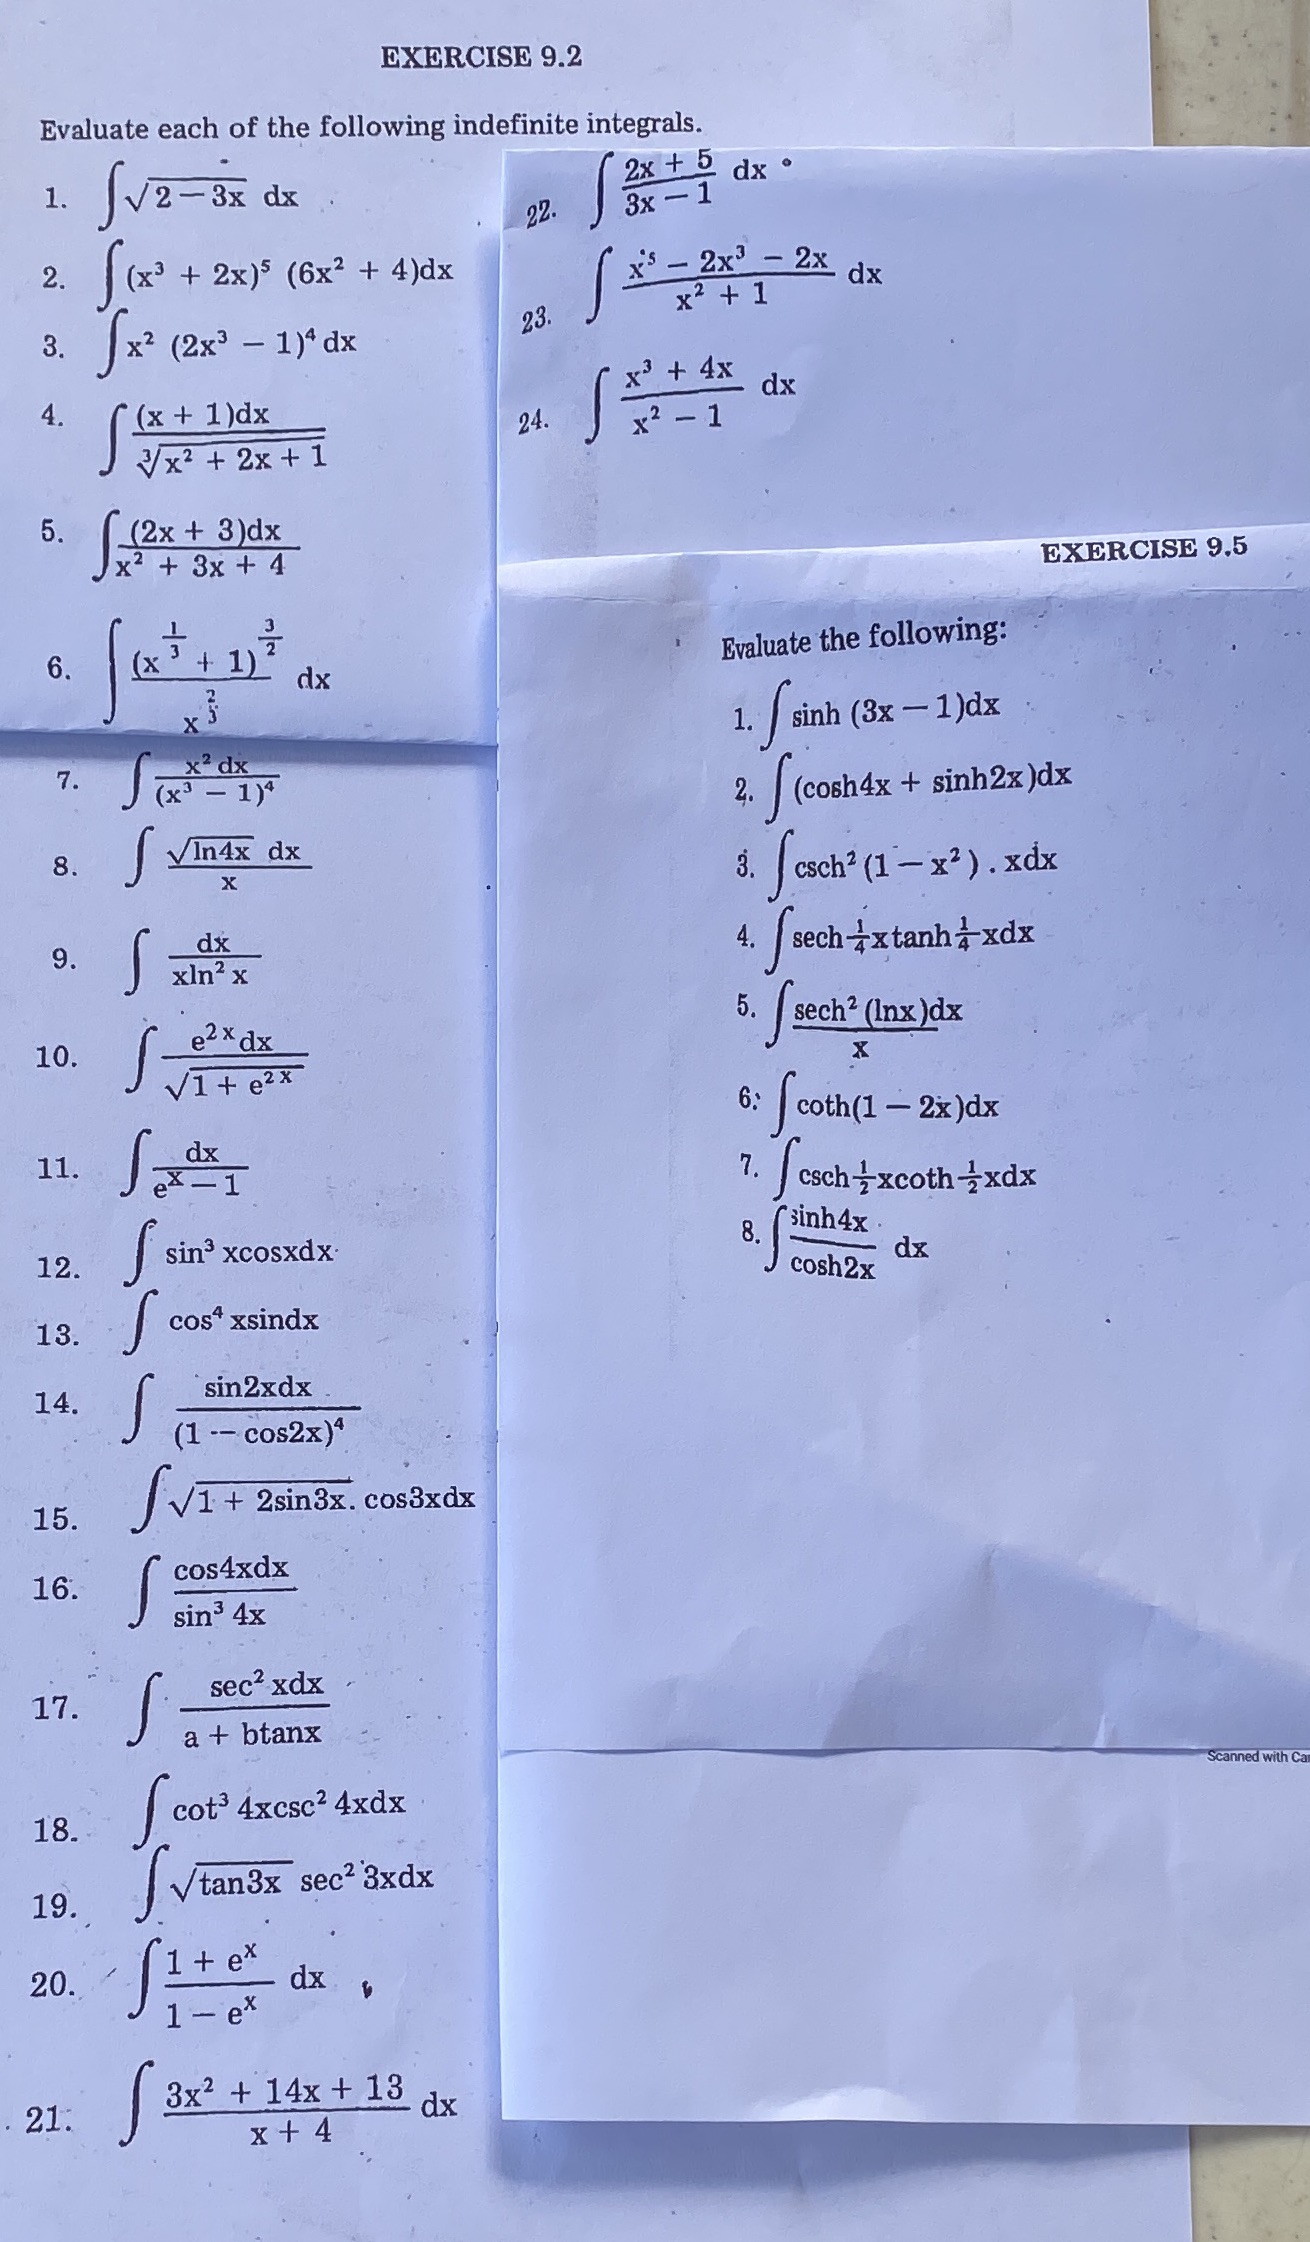 EXERCISE 9.2
Evaluate each of the following indefinite integrals.
1. ∫√(2 − 3x) dx
2. ∫(x³ + 2x)⁵ (6x² + 4)dx
3. ∫x² (2x³ − 1)⁴ dx
4. ∫ (x + 1)dx / ∛(x² + 2x + 1)
5. ∫ (2x + 3)dx / (x² + 3x + 4)
6. ∫ (x^(1/3) + 1)^(3/2) / x^(2/3) dx
7. ∫ x² dx / (x³ − 1)⁴
8. ∫ √(ln4x) dx / x
9. ∫ dx / (xln² x)
10. ∫ e^(2x) dx / √(1 + e^(2x))
11. ∫ dx / (e^x − 1)
12. ∫ sin³ xcosxdx
13. ∫ cos⁴ xsindx
14. ∫ sin2xdx / (1 − cos2x)⁴
15. ∫√(1 + 2sin3x). cos3xdx
16. ∫ cos4xdx / sin³ 4x
17. ∫ sec² xdx / (a + btanx)
18. ∫ cot³ 4xcsc² 4xdx
19. ∫ √(tan3x) sec² 3xdx
20. ∫ (1 + e^x) / (1 − e^x) dx
21. ∫ (3x² + 14x + 13) / (x + 4) dx
22. ∫ (2x + 5) / (3x − 1) dx
23. ∫ (x⁵ − 2x³ − 2x) / (x² + 1) dx
24. ∫ (x³ + 4x) / (x² − 1) dx
EXERCISE 9.5
Evaluate the following:
1. ∫ sinh (3x − 1)dx
2. ∫ (cosh4x + sinh2x)dx
3. ∫ csch² (1 − x²) . xdx
4. ∫ sech 1/4 xtanh 1/4 xdx
5. ∫ sech² (lnx)dx / x
6: ∫ coth(1 − 2x)dx
7. ∫ csch 1/2 xcoth 1/2 xdx
8. ∫ sinh4x / cosh2x dx
Scanned with Ca